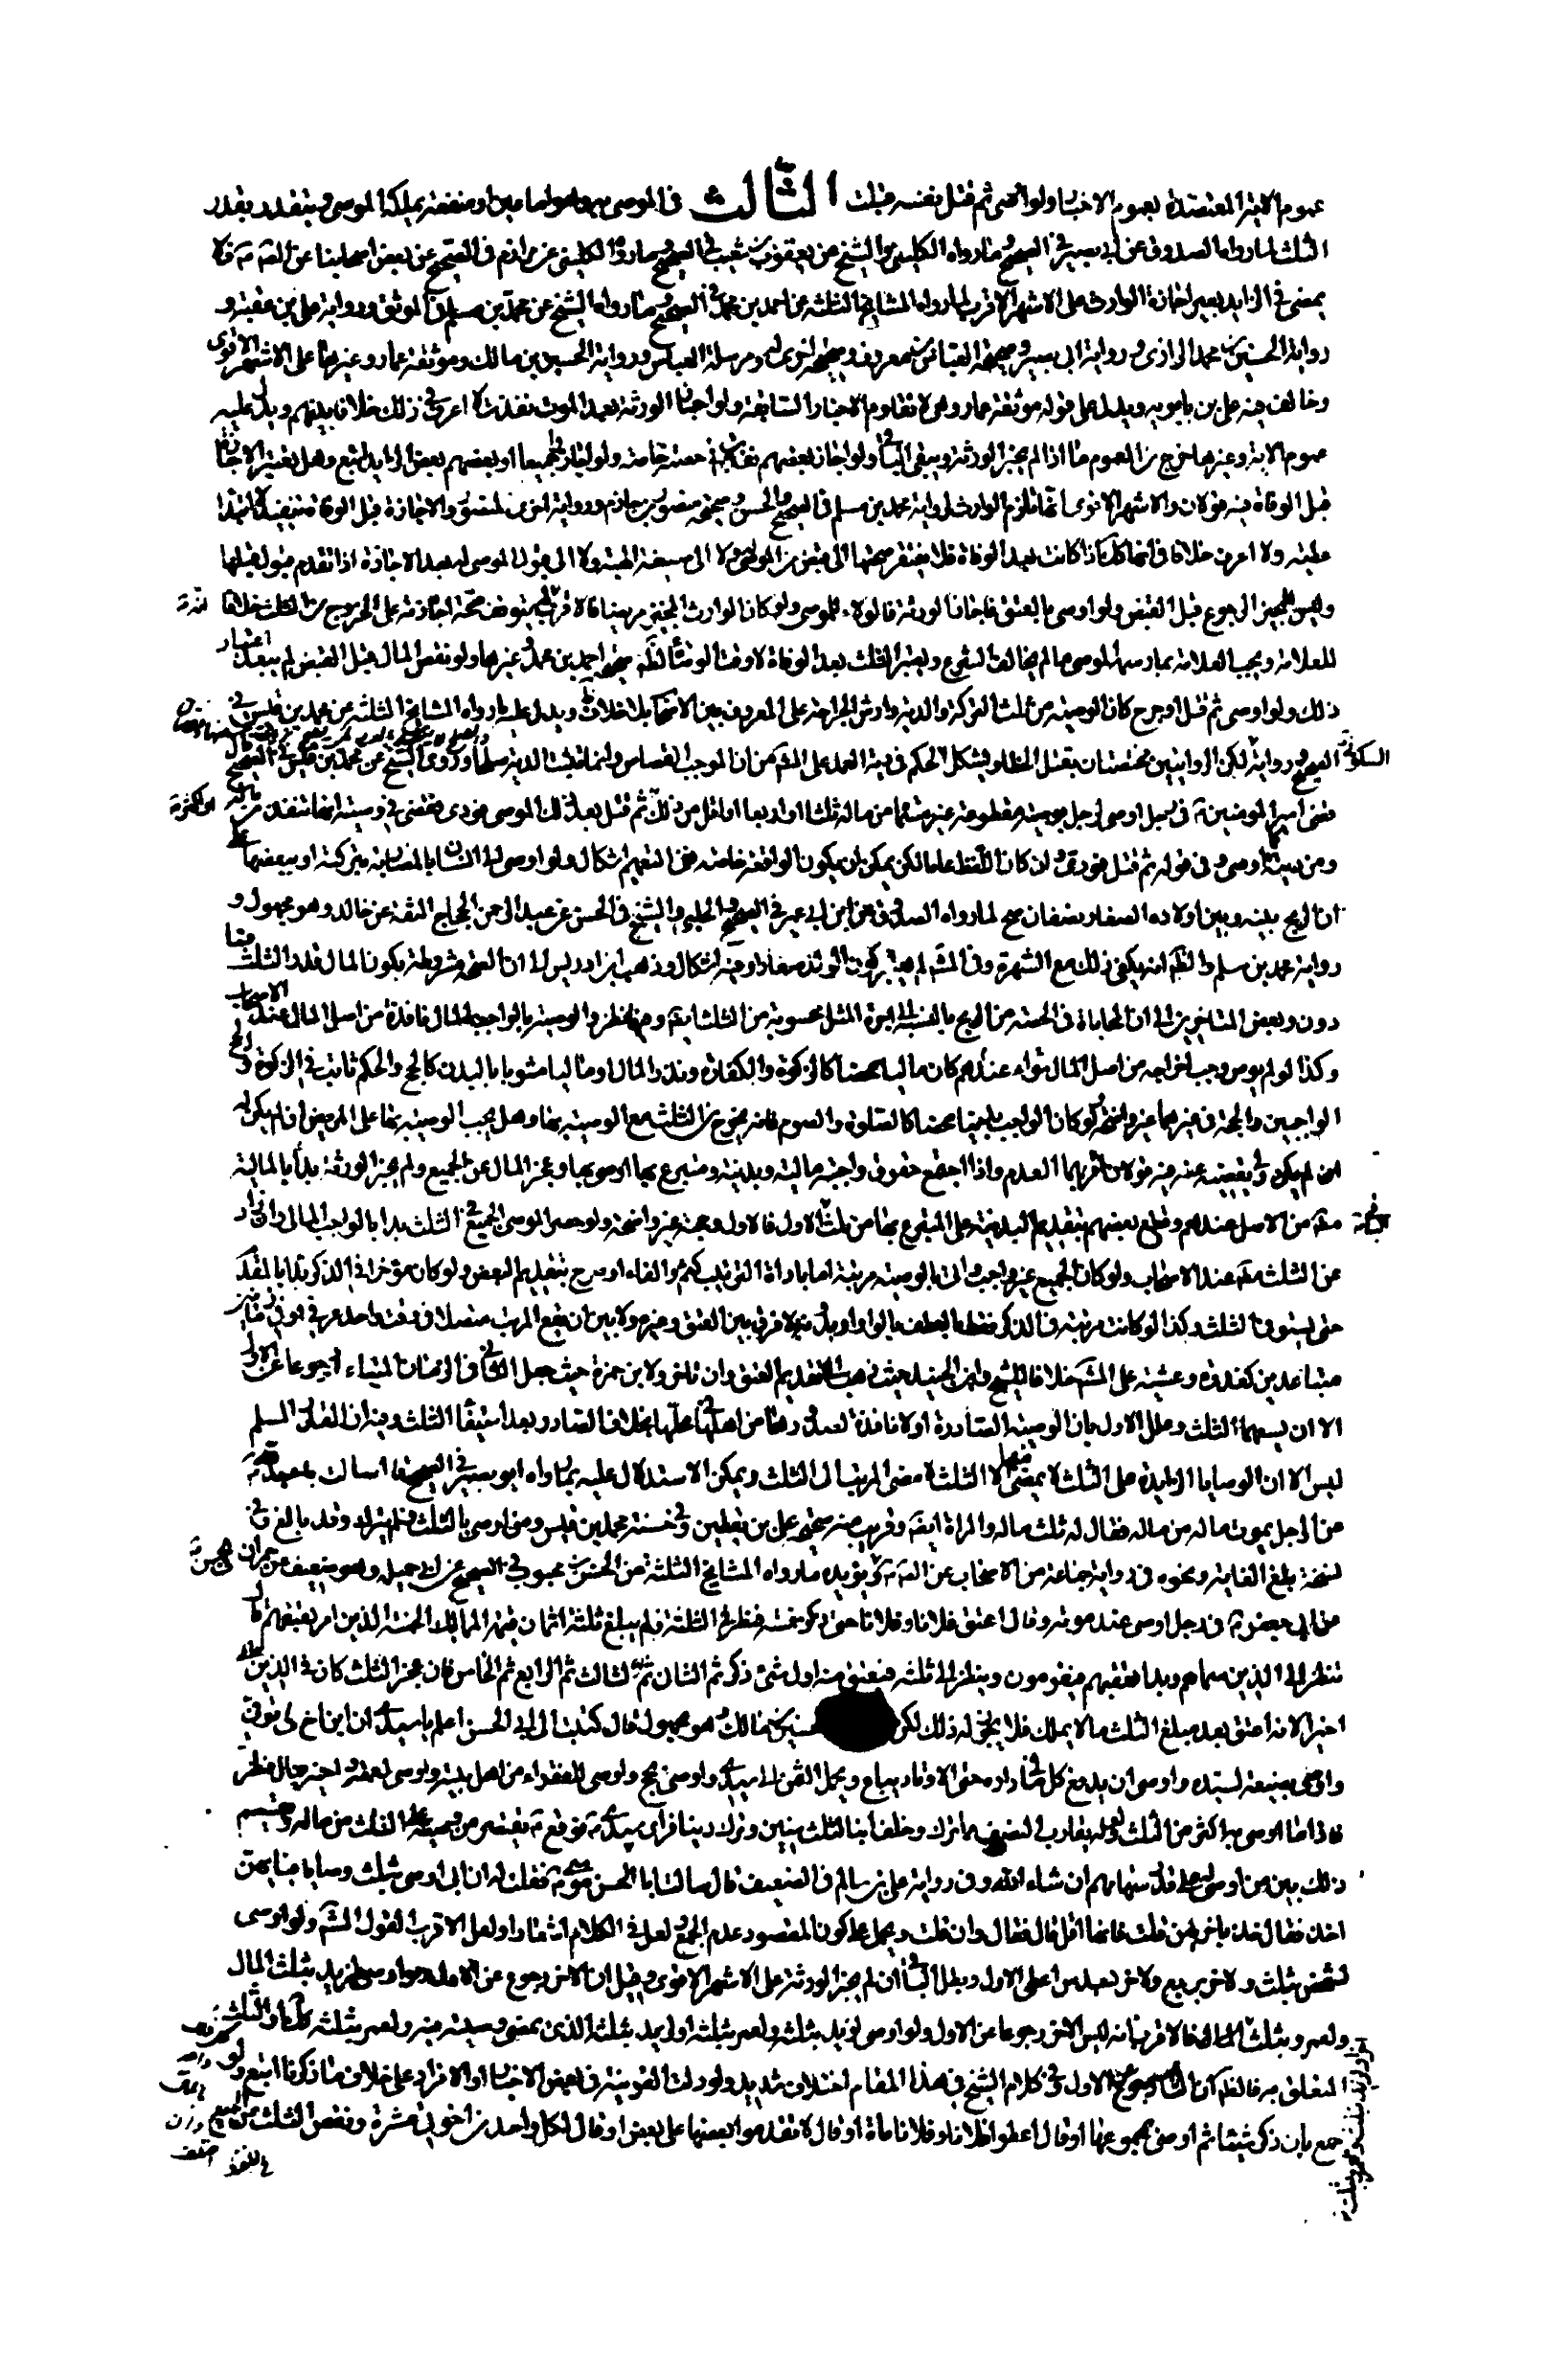 عموم الاية المعتضدة بعموم الاخبار ولو اوصى ثم قتل نفسه قبلت الثالث فى الموصى به وهو اما عين او منفعة يملكه الموصى ويتقدر بقدر
الثلث لما رواه الصدوق عن ابى بصير فى الصحيح وما رواه الكلينى والشيخ عن يعقوب بن شعيب فى الصحيح وما رواه الكلينى عن مرازم فى الصحيح عن بعض اصحابنا عن
يمضى فى الزايد بغير اجازة الوارث على الاشهر الاقرب لما رواه المشايخ الثلثة عن احمد بن محمد فى الصحيح وما رواه الشيخ عن محمد بن مسلم فى الموثق ورواية على بن عقبة و
رواية الحسين بن محمد الرازى ورواية ابى بصير وصحيحة العباس بن معروف وصحيحة اخرى له ومرسلة العباس ورواية الحسين بن مالك وموثقة عمار وغيرها على الاشهر الاقوى
وخالف فيه على بن بابويه ويدل على قوله موثقة عمار وهى لا تقاوم الاخبار السابقة ولو اجاز الورثة بعد الموت نفذت لا اعرف فى ذلك خلافا بينهم ويدل عليه
عموم الاية وغيرها خرج من العموم ما اذا لم يجز الورثة ويبقى الباقى ولو اجاز بعضهم نفذت فى حصته خاصة ولو اجازوا جميعا او بعضهم بعض الزايد اتبع وهل يعتبر الاجازة
قبل الوفاة فيه قولان والاشهر الاقوى انها تلزم الوارث لرواية محمد بن مسلم فى الصحيح والحسن وصحيحة منصور بن حازم ورواية اخرى لمنصور والاجازة قبل الوفاة تنفيذ لا ابتداء
عطية ولا اعرف خلافا فى انها كذلك اذا كانت بعد الوفاة فلا يفتقر صحتها الى قبض من الموصى له ولا الى صيغة الهبة ولا الى قبول الموصى له بعد الاجازة اذا تقدم قبوله قبلها
وليس للمجيز الرجوع قبل القبض ولو اوصى بالعتق فاجاز الورثة فالولاء للموصى ولو كان الوارث المجيز مريضا فالاقرب توقف صحة اجازته على الخروج من الثلث خلافا
للعلامة ويجب العمل بما رسمه الموصى ما لم يخالف الشرع ويعتبر الثلث بعد الوفاة لا وقت الوصية لظ صحيحة احمد بن محمد وغيرها ولو نقص المال قبل القبض لم يبعد اعتبار
ذلك ولو اوصى ثم قتل او جرح كان الوصية من ثلث التركة والدية وارش الجراحة على المعروف بين الاصحاب بلا خلاف ويدل عليه ما رواه المشايخ الثلثة عن محمد بن قيس فى
الصحيح ورواية السكونى لكن الروايتين مختصتان بقتل الخطاء ويشكل الحكم فى دية العمد على المش من ان الموجب القصاص وانما يثبت الدية صلحا وروى الشيخ عن محمد بن قيس فى الصحيح قال
قضى امير المؤمنين فى رجل اوصى لرجل بوصية مقطوعة غير مسماة من ماله ثلثا او ربعا او اقل من ذلك ثم قتل بعد ذلك الموصى فودى فقضى فى وصيته انها تنفذ من ماله
ومن ديته كما اوصى وفى قوله ثم قتل فودى وان كان اللفظ عاما لكن يمكن ان يكون الواقعة خاصة ففى التعميم اشكال ولو اوصى الى انسان بالمضاربة بتركته او ببعضها على
ان الربح بينه وبين اولاده الصغار نصفان صح لما رواه الصدوق عن ابن ابى عمير فى الصحيح والكلينى والشيخ فى الحسن عن عبد الرحمن الحجاج الثقة عن خالد وهو مجهول و
رواية محمد بن مسلم والظ انه يكفى ذلك مع الشهرة وفى المش لم يعتبر كون الولد صغارا وفيه اشكال وذهب ابن ادريس الى ان الصحة مشروطة بكون المال قدر الثلث فما
دون وبعض المتاخرين الى ان المحاباة فى الحصة من الربح بالنسبة الى اجرة المثل محسوبة من الثلث ايضا وفيهما نظر والوصية بالواجب المالى نافذة من اصل المال عند الاصحاب
وكذا لو لم يوص وجب اخراجه من اصل المال سواء عندهم كان ماليا محضا كالزكوة والكفارة ونذر المال او ماليا مشوبا بالبدن كالحج والحكم ثابت فى الزكوة والحج
الواجبين والحجة فى غيرهما غير واضحة ولو كان الواجب بدنيا محضا كالصلوة والصوم فانه يخرج من الثلث مع الوصية بها وهل يجب الوصية بها على المريض اذا لم يكن له
ابن لم يكن ولى يقضيه عنه فيه قولان اقربهما العدم واذا اجتمع حقوق واجبة مالية وبدنية ومتبرع بها اوصى بها وعجز المال عن الجميع ولم يجز الورثة بدأ بالمالية
من الاصل عندهم وقطع بعضهم بتقديم البدنية على المتبرع بها من ثلث الاول فالاول وحجته غير واضحة ولو حصر الموصى الجميع فى الثلث بدا بالواجب المالى وان زاد
عن الثلث عند الاصحاب ولو كان الجميع غير واجب واتى بالوصية مرتبة اما باداة الترتيب كثم والفاء او صرح بتقديم البعض ولو كان مؤخرا فى الذكر بدا بالمقدم
حتى يستوفى الثلث وكذا لو كانت مرتبة فى الذكر فقط بالعطف بالواو او بدونه لا فرق بين العتق وغيره ولا بين ان يقع المرتب متصلا فى وقت واحد عرفى او فى زمانين
متباعدين كغدوة وعشية على المش خلافا للشيخ وابن الجنيد حيث ذهبا الى تقديم العتق وان تاخر ولابن حمزة حيث جعل الثانى فى الزمان المتباعد رجوعا عن الاول
الا ان يسعهما الثلث وعلل الاول بان الوصية الصادرة اولا نافذة لصدورها من اهلها فى محلها بخلاف الصادر بعد استيفاء الثلث وفيه ان القدر المسلم
ليس الا ان الوصايا الزايدة على الثلث لا يمضى منها الا الثلث لا مضى المرتب الى الثلث ويمكن الاستدلال عليه بما رواه ابو بصير فى الصحيح قال سالت ابا عبد الله
عن الرجل يموت ماله من ماله فقال له ثلث ماله والمراة ايضا وقريب منه صحيحة على بن يقطين وفى حسنة محمد بن قيس ومن اوصى بالثلث فلم يترك وقد بالغ وفى
نسخة بلغ الغاية ونحوه فى رواية جماعة من الاصحاب عن ويؤيده ما رواه المشايخ الثلثة عن الحسن بن محبوب فى الصحيح عن ابى جميلة وهو ضعيف عن حمران
عن ابى جعفر فى رجل اوصى عند موته وقال اعتق فلانا وفلانا حتى ذكر خمسة فنظر فى الثلثة فلم يبلغ ثلثه اثمان قيمة المماليك الخمسة الذين امر بعتقهم قال
ينظر الى الذين سماهم وبدا بعتقهم فيقومون وينظر الى ثلثه فيعتق منه اول شىء ذكر ثم الثانى ثم الثالث ثم الرابع ثم الخامس فان عجز الثلث كان فى الذين سماهم
اخيرا لانه اعتق بعد مبلغ الثلث ما لا يملك فلا يجوز له ذلك لكن بن مالك وهو مجهول قال كتبت الى ابى الحسن اعلم يا سيدى ان ابن اخ لى توفى
واوصى بضيعة لسيده واوصى ان يدفع كل شىء فى داره حتى الاوتاد يباع ويحمل الثمن الى سيدى واوصى بحج واوصى للفقراء من اهل بيته واوصى لعمته واخته بمال فنظرت
فاذا ما اوصى به اكثر من الثلث ولعله يقارب النصف مما ترك وخلف ابنا لثلث سنين وترك دينا فراى سيدى فوقع يقتصر من وصيته على الثلث من ماله ويقسم
ذلك بين من اوصى له على قدر سهامهم ان شاء الله وفى رواية على بن سالم فى الضعيف قال سالت ابا الحسن موسى فقلت له ان ابى اوصى بثلث وصايا فبايهن
اخذ فقال خذ باخرهن قلت فانها اقل قال فقال وان قلت ويحمل على كون المقصود عدم الجمع ولعل فى الكلام اشعارا ولعل الاقرب القول المش ولو اوصى
لشخص بثلث ولاخر بربع ولاخر بسدس اعطى الاول وبطل الباقى ان لم يجز الورثة على الاشهر الاقوى وقيل ان الاخر رجوع عن الاول ولو اوصى لزيد بثلث المال
ولعمرو بثلث المال فالاقرب انه ليس الاخر رجوعا عن الاول ولو اوصى لزيد بثلثه ولعمرو بثلثه او لزيد بثلثه الذى يمضى وصيته فيه ولعمرو بثلثه كذلك او الثلث
المتعلق به فالظ ان الثانى رجوع عن الاول وفى كلام الشيخ فى هذا المقام اختلاف شديد ولو دلت القرينة فى بعض الاخبار او الافراد على خلاف ما ذكرنا اتبع ولو
جمع بان ذكر شيئا ثم اوصى بمجموعها او قال اعطوا فلانا وفلانا مأة او قال لا تقدموا بعضها على بعض او قال لكل واحد من اخوتى عشرة ونقص الثلث عن الجميع وزع